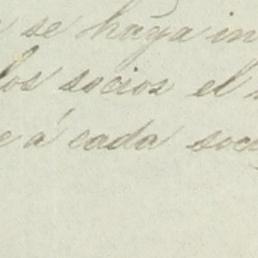 se haya in
los socios el
e á cada soci